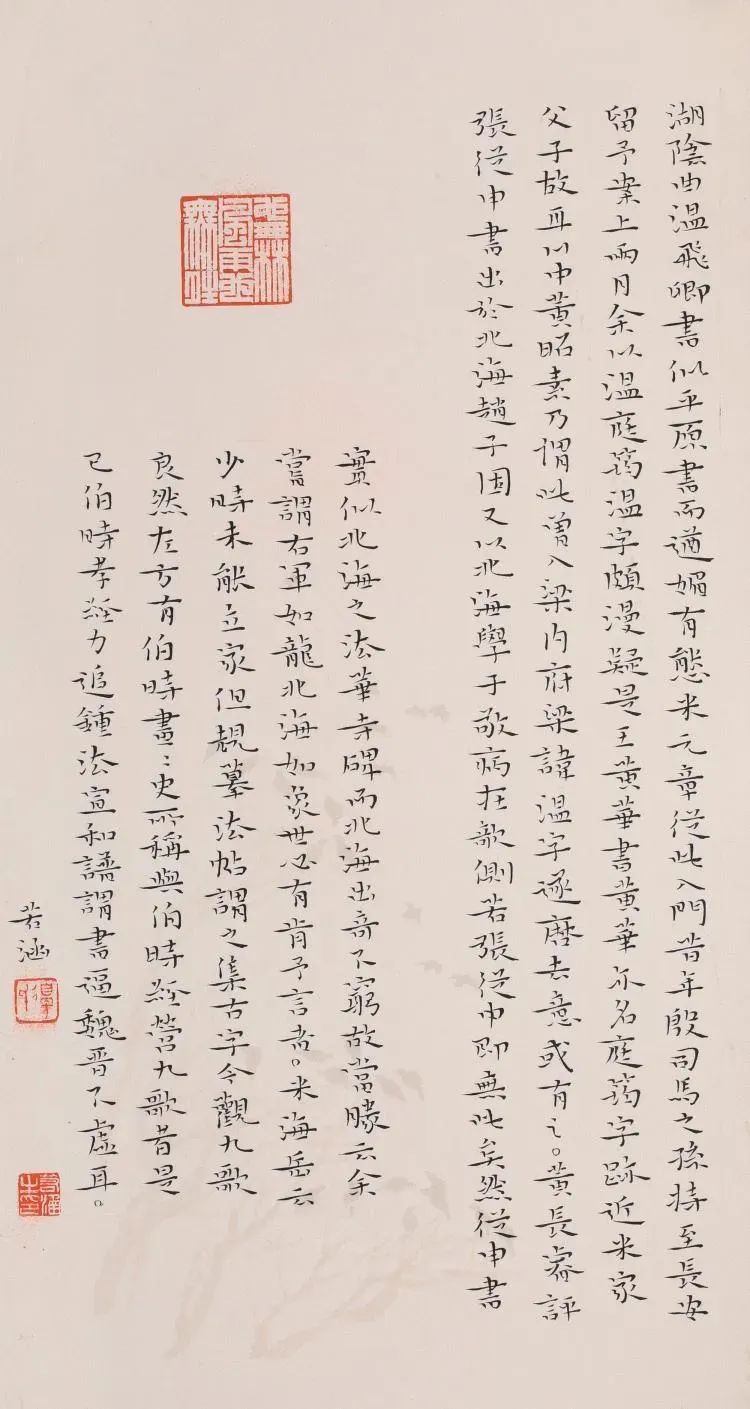 湖陰曲溫飛卿書似平原書而遒媚有態米元章從此入門昔年殷司馬之孫持至長安
留予案上兩月余以溫庭筠溫字頗漫疑是王黃華書黃華亦名庭筠字跡近米家
父子故耳以中黃昭素乃謂此曾入梁內府梁諱溫字遂磨去意或有之。黃長睿評
張從申書出於北海趙子固又以北海學子敬病在欹側若張從申即無此矣然從申書
實似北海之法華寺碑而北海出奇不窮故當勝云余
嘗謂右軍如龍北海如象世必有肯予言者。米海岳云
少時未能立家但規摹法帖謂之集古字今觀九歌
良然左方有伯時畫〻史所稱與伯時經營九歌者是
已伯時孝經力追鍾法宣和譜謂書逼魏晉不虛耳。
若涵